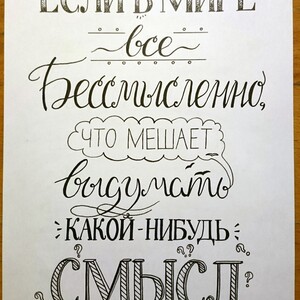 ЕСЛИ В МИРЕ
все
Бессмысленно,
ЧТО МЕШАЕТ
выдумать
КАКОЙ-НИБУДЬ
СМЫСЛ
? ? ? ? ?